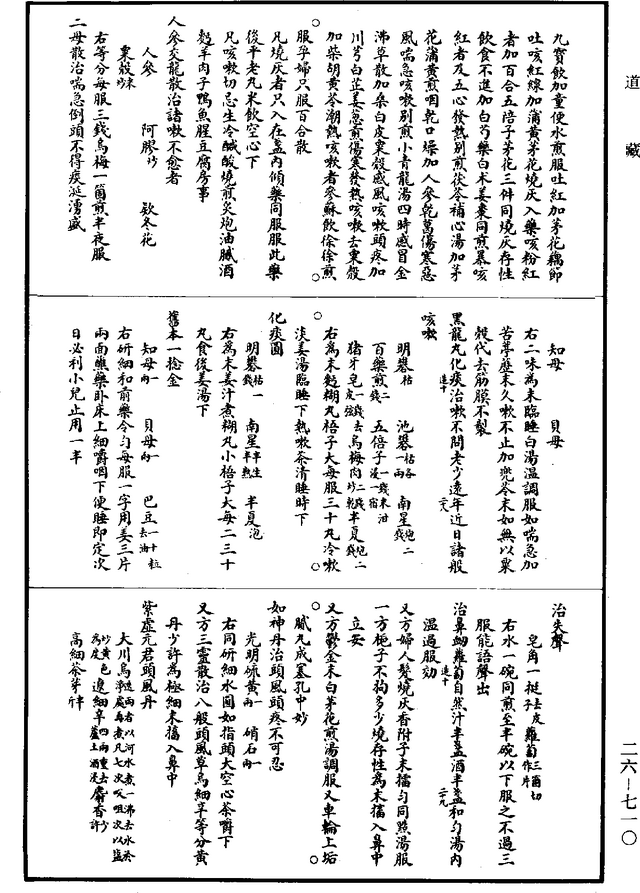 道藏
九寶飲加童便水煎服吐紅加茅花藕節
吐咳紅線加蒲黃茅花燒灰入藥咳粉紅
者加百合五倍子茅花三件同燒灰存性
飲食不進加白芍藥白朮姜棗同煎暴咳
紅者及五心發熱別煎茯苓補心湯加茅
花蒲黃煎咽乾口燥加人參乾葛傷寒惡
風喘急咳嗽別煎小青龍湯四時感冒金
沸草散加桑白皮粟殼感風咳嗽頭疼加
川芎白芷姜葱煎傷寒發熱咳嗽去粟殼
加柴胡黃芩潮熱咳嗽者參蘇飲徐徐煎
服孕婦只服百合散
凡燒灰者只入在盞內傾藥同服服此藥
後平老丸米飲空心下
凡咳嗽切忌生冷醎酸燒煎炙炮油膩酒
麪羊肉子鴨魚腥豆腐房事
人參交龍散治諸嗽不愈者
人參 阿膠炒 欵冬花
粟殼炒
右等分每服三錢烏梅一箇煎半夜服
二母散治喘急倒頭不得痰涎湧盛
知母 貝母
右二味為末臨睡白湯溫調服如喘急加
苦葶藶末久嗽不止加兜苓末如無以粟
殼代去筋膜不製
黑龍丸化痰治嗽不問老少遠年近日諸般
咳嗽
明礬枯 池礬枯各一兩 南星炮二
百藥煎二錢 五倍子一錢米泔浸一宿
猪牙皂去皮弦 去烏梅肉二錢炒乾 半夏炮二錢
右為末麪糊丸梧子大每服三十丸冷嗽
淡姜湯臨睡下熱嗽茶清睡時下
化痰圓
明礬枯一錢 南星半生半熟 半夏泡
右為末姜汁煮糊丸小梧子大每二三十
丸食後姜湯下
舊本一捻金
知母一兩 貝母一兩 巴豆十粒去油
右研細和前藥令勻每服一字用姜三片
兩面蘸藥卧床上細嚼咽下便睡即定次
日必利小兒止用一半
治失聲
皂角一挺去皮子 蘿蔔三箇切作片
右水二碗同煎至半碗以下服之不過三
服能語聲出
治鼻衂蘿蔔自然汁半盞酒半盞和勻湯內
溫過服効
又方婦人髮燒灰香附子末擂勻同熟湯服
一方梔子不拘多少燒存性為末搐入鼻中
立妥
又方鬱金末白茅花煎湯調服又車輪上垢
膩丸成塞孔中妙
如神丹治頭風頭疼不可忍
光明硫黃一兩 硝石一兩
右同研細水圓如指頭大空心茶嚼下
又方三靈散治八般頭風草烏細辛等分黃
丹少許為極細末搐入鼻中
紫虛元君頭風丹
高細茶芽
二六-七一〇